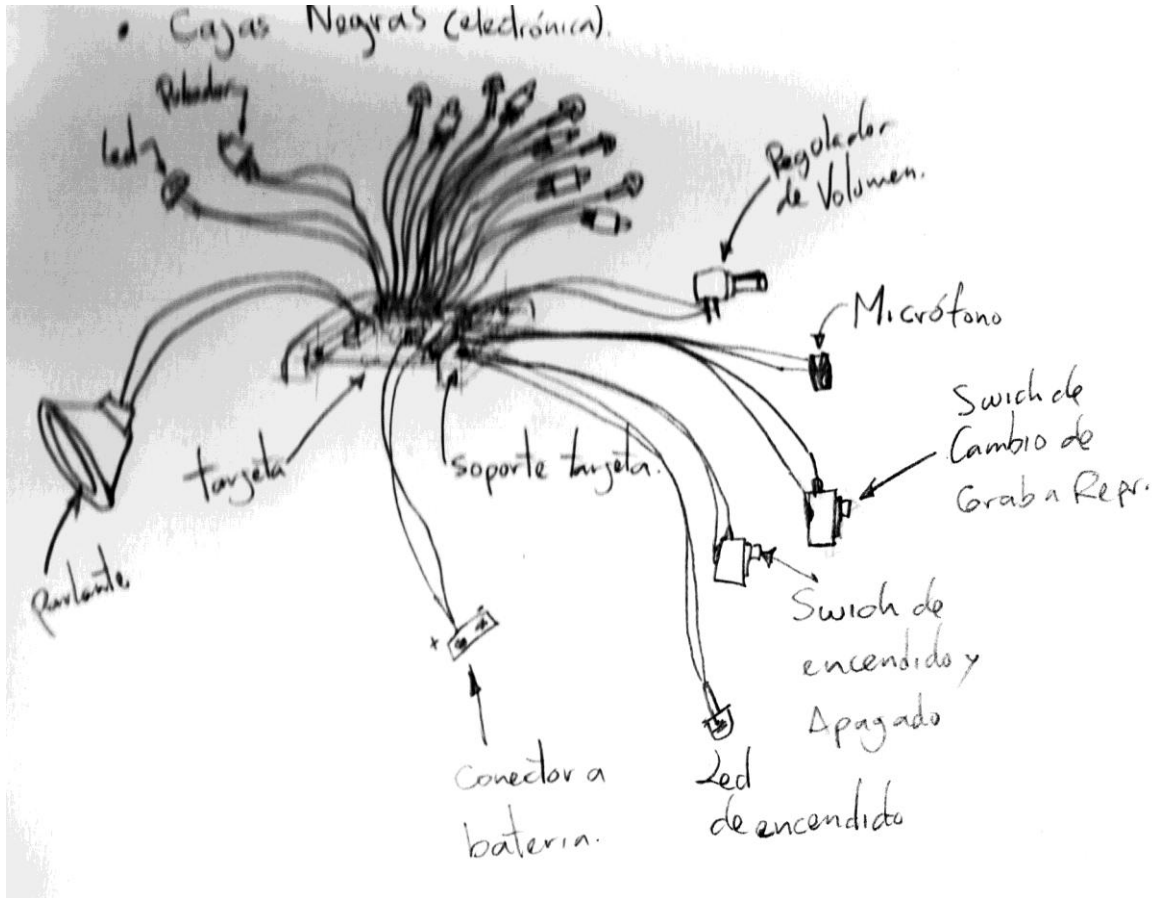 • Cajas Negras (electrónica).
Pulsador
Led
Regulador
de Volumen.
Micrófono
Swich de
Cambio de
Grab a Repr.
tarjeta
soporte tarjeta.
parlante
+ -
Swich de
encendido y
Apagado
Conector a
bateria.
Led
de encendido